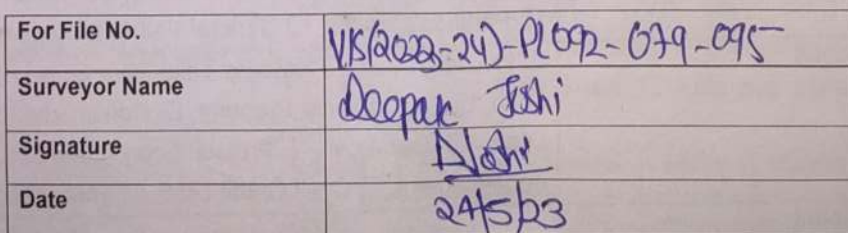 For File No. VIS(2023-24)-PL092-079-095
Surveyor Name Deepak Joshi
Signature DJoshi
Date 24/5/23